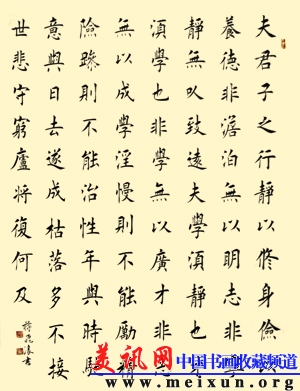 夫君子之行靜以修身儉以
養德非澹泊無以明志非
靜無以致遠夫學須靜也
須學也非學無以廣才非
無以成學淫慢則不能勵精
險躁則不能治性年與時馳
意與日去遂成枯落多不接
世悲守窮廬將復何及
書
美讯网
中国书画收藏频道
www.meixun.org